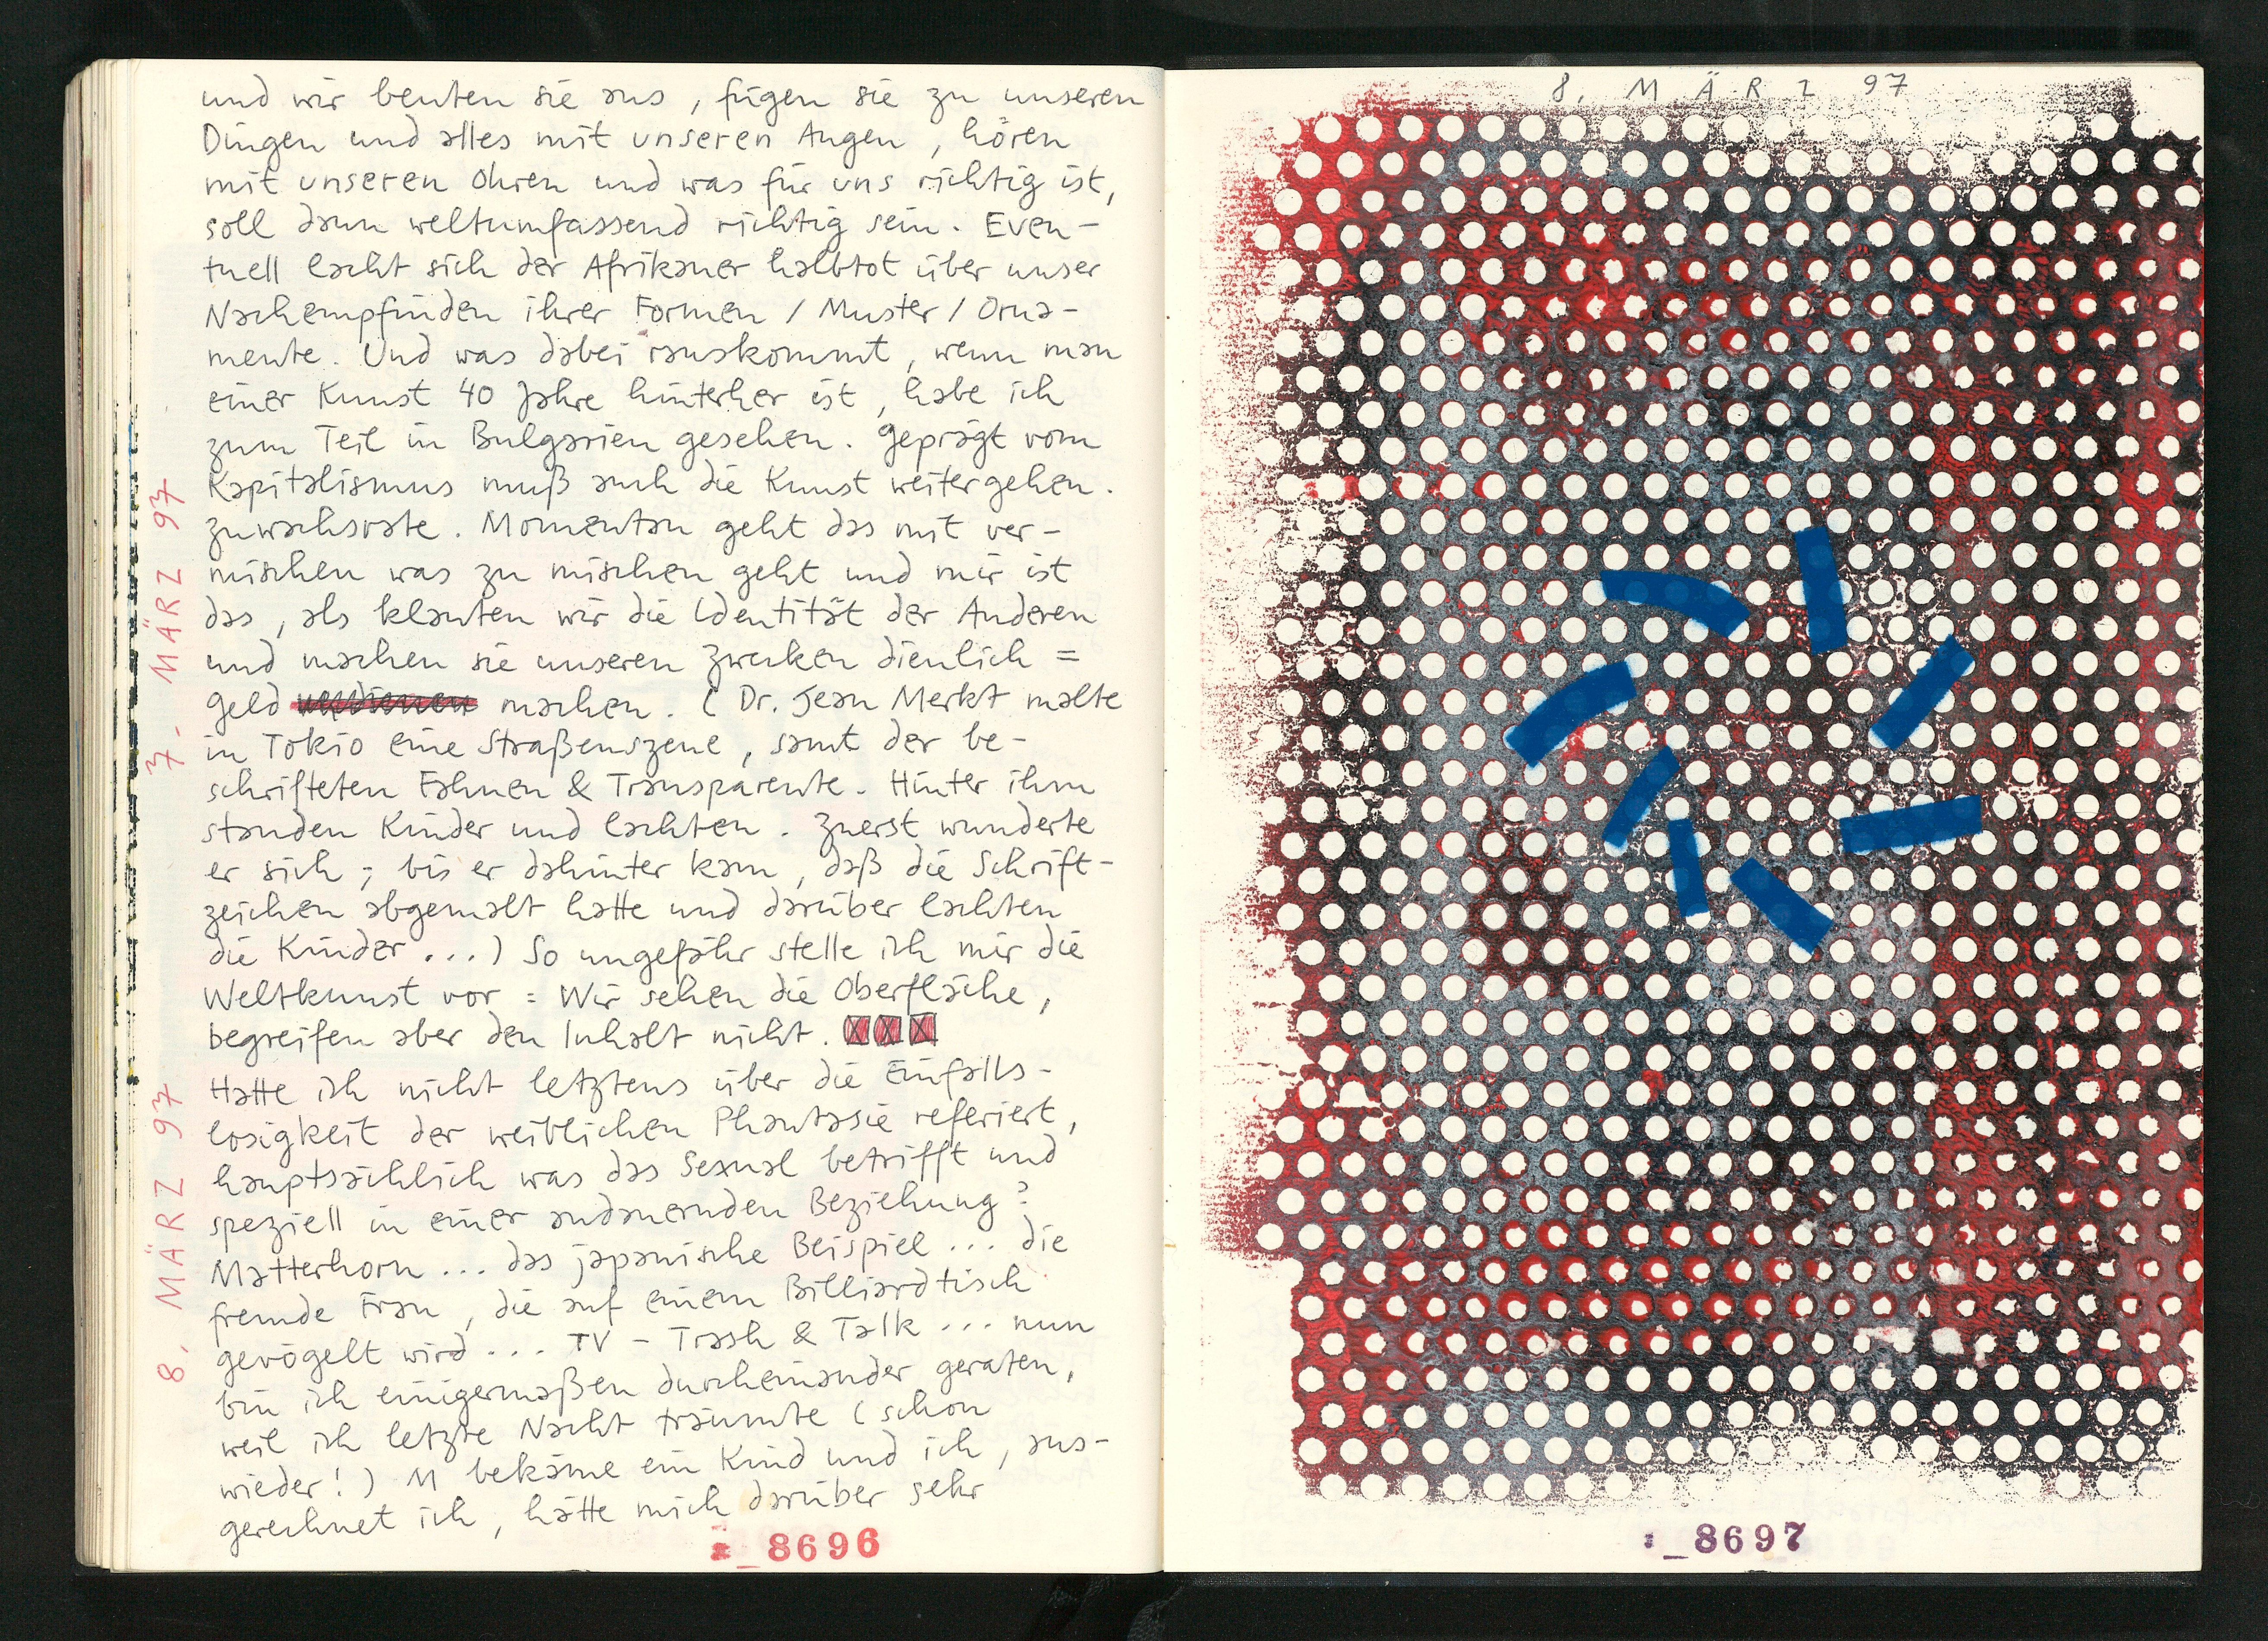 und wir beuten sie aus, fügen sie zu unseren
Dingen und alles mit unseren Augen, hören
mit unseren Ohren und was für uns richtig ist,
soll dann weltumfassend richtig sein. Even-
tuell lacht sich der Afrikaner halbtot über unser
Nachempfinden ihrer Formen / Muster / Orna-
mente. Und was dabei rauskommt, wenn man
einer Kunst 40 Jahre hinterher ist, habe ich
zum Teil in Bulgarien gesehen. Geprägt vom
Kapitalismus muß auch die Kunst weitergehen.
Zuwachsrate. Momentan geht das mit ver-
mischen was zu mischen geht und mir ist
das, als klauten wir die Identität der Anderen
und machen sie unseren Zwecken dienlich =
Geld machen. (Dr. Jean Merkt malte
in Tokio eine Straßenszene, samt der be-
schrifteten Fahnen & Transparente. Hinter ihm
standen Kinder und lachten. Zuerst wunderte
er sich; bis er dahinter kam, daß die Schrift-
zeichen abgemalt hatte und darüber lachten
die Kinder...) So ungefähr stelle ich mir die
Weltkunst vor: Wir sehen die Oberfläche,
begreifen aber den Inhalt nicht.
7. MÄRZ 97
Hatte ich nicht letztens über die Einfalls-
losigkeit der weiblichen Phantasie referiert,
hauptsächlich was das Sexual betrifft und
speziell in einer andauernden Beziehung?
Matterhorn... das japanische Beispiel... die
fremde Frau, die auf einem Billiardtisch
gevögelt wird... TV - Trash & Talk... nun
bin ich einigermaßen durcheinander geraten,
weil ich letzte Nacht träumte (schon
wieder!) M bekäme ein Kind und ich, aus-
gerechnet ich, hätte mich darüber sehr
8. MÄRZ 97
8696
8. MÄRZ 97
8697